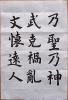 乃聖乃神
武克禍亂
文懷遠人